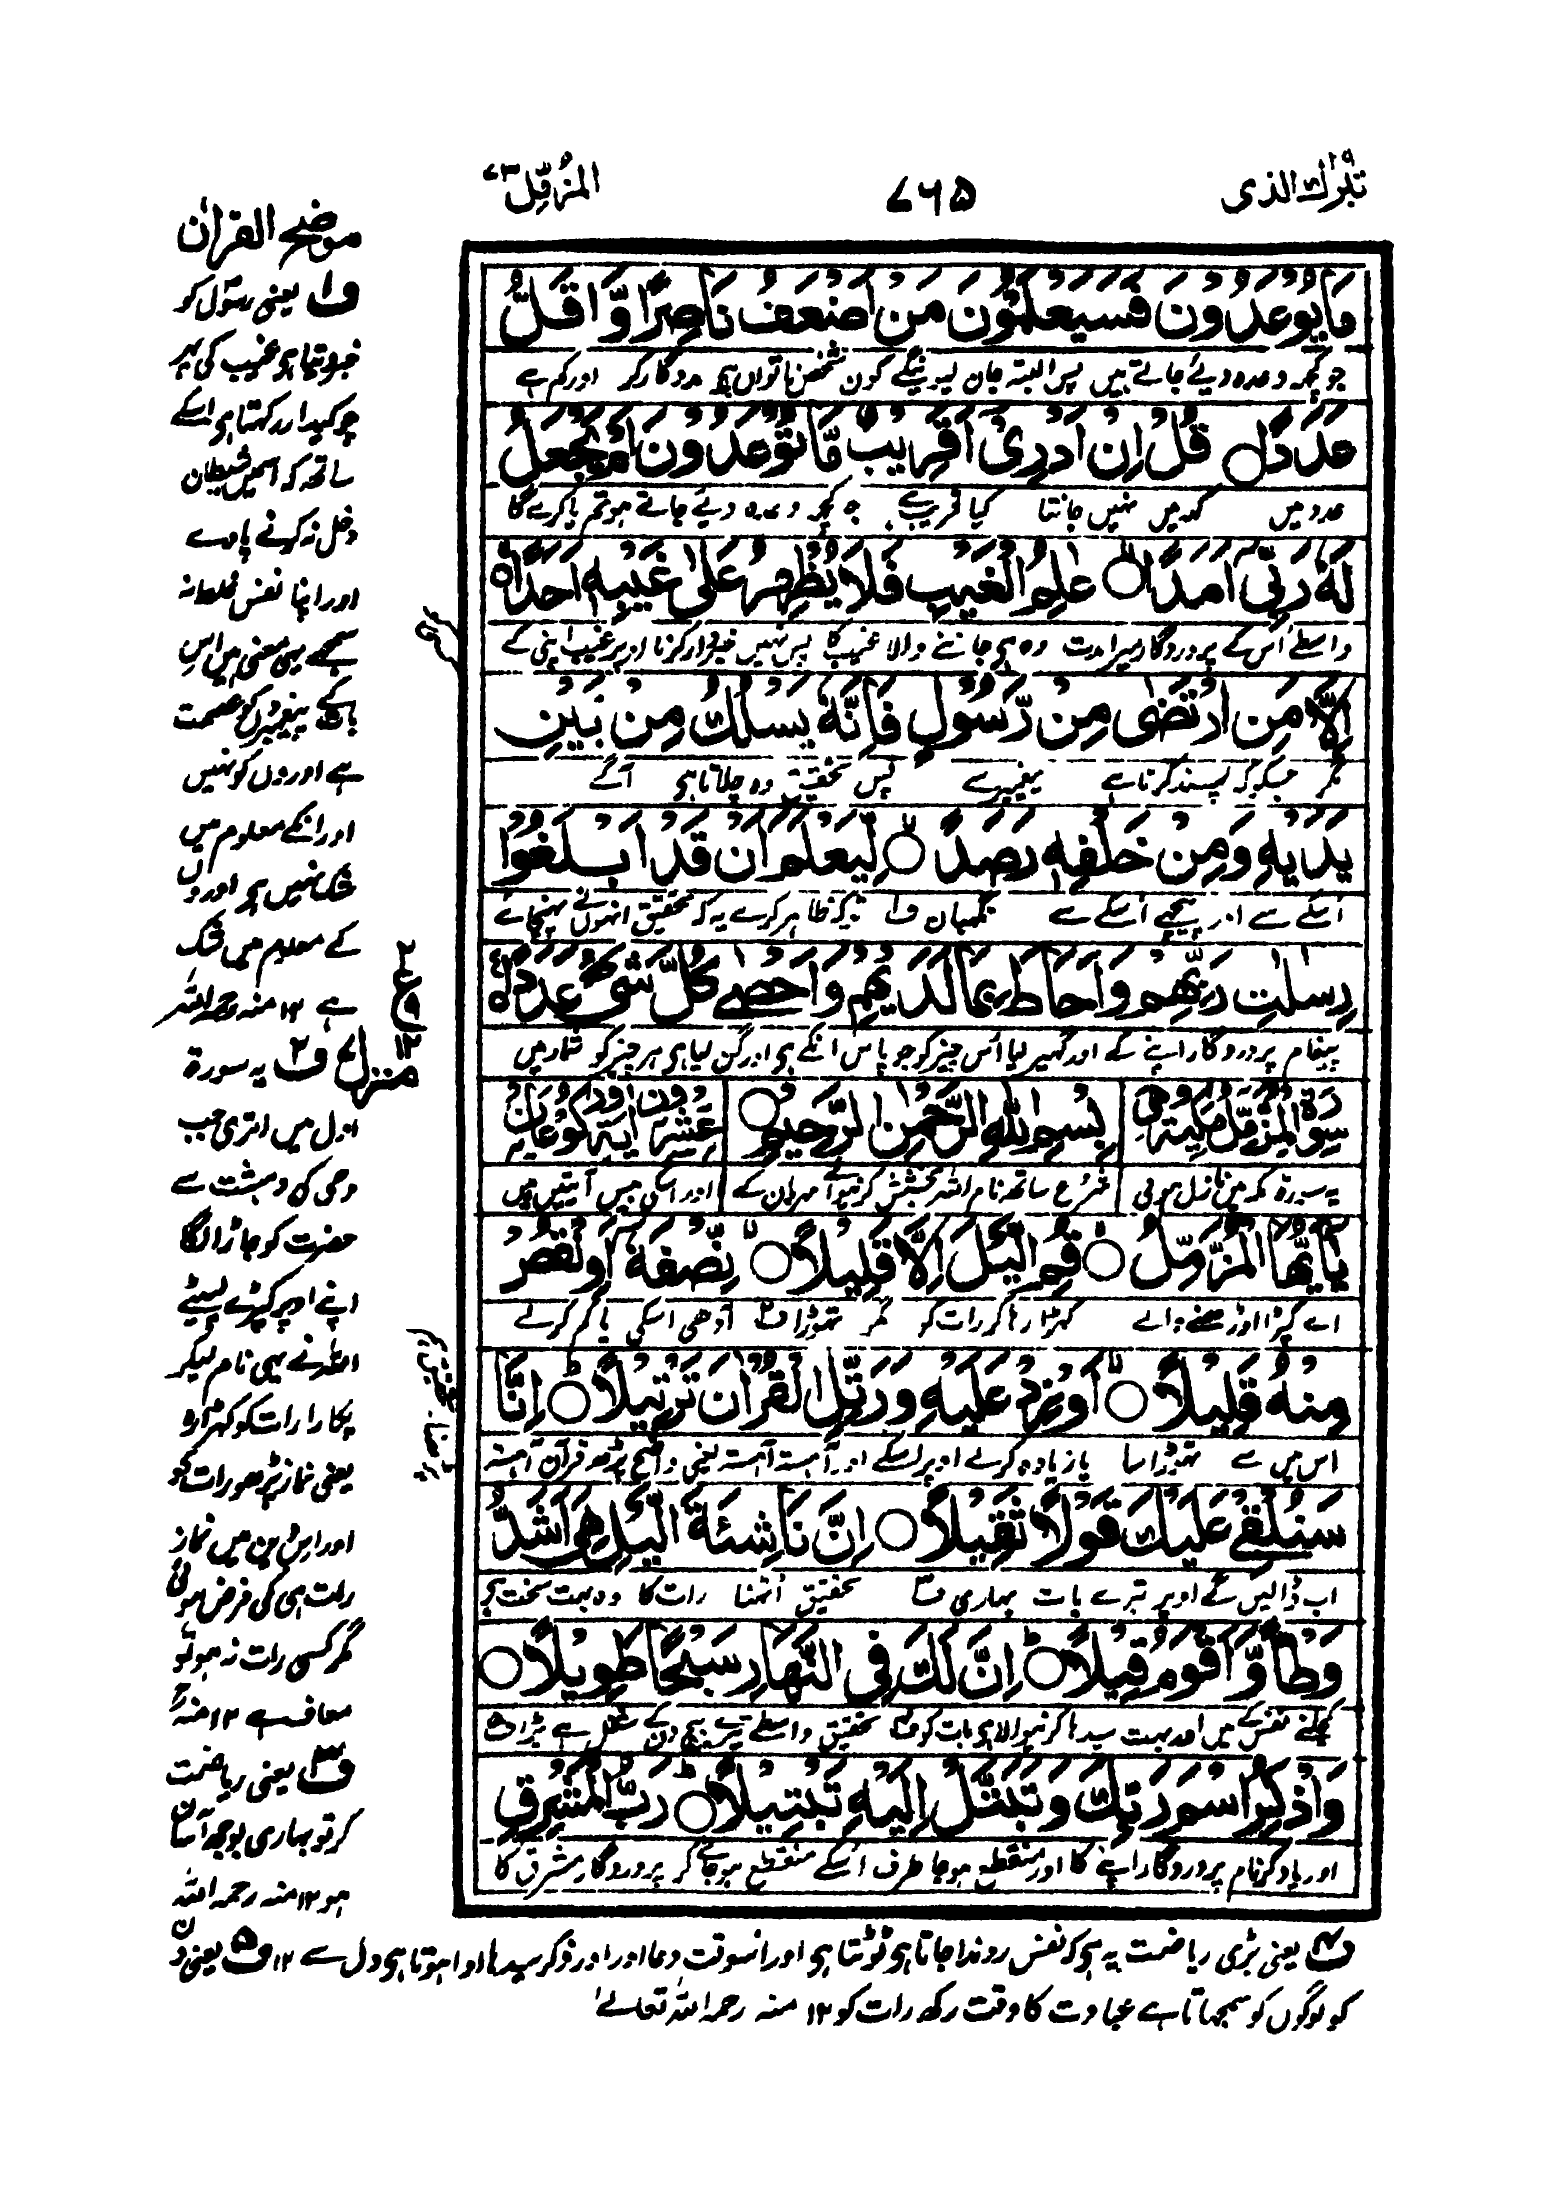 تبٰرك الذی ۲۹
۷۶۵
المزمّل ۷۳
مَا يُوْعَدُوْنَ فَسَيَعْلَمُوْنَ مَنْ اَضْعَفُ نَاصِرًا وَّاَقَلُّ
جو کچھ وعدہ دیئے جاتے ہیں پس البتہ جان لیوینگے کون شخص ناتواں ہی مددگار کر اور کم ہے
عَدَدًا ○ قُلْ اِنْ اَدْرِيْٓ اَقَرِيْبٌ مَّا تُوْعَدُوْنَ اَمْ يَجْعَلُ
عدد میں کہہ میں نہیں جانتا کیا قریب ہے جو کچھ وعدہ دیئے جاتے ہو تم یا کرے گا
لَهٗ رَبِّيْٓ اَمَدًا ○ عٰلِمُ الْغَيْبِ فَلَا يُظْهِرُ عَلٰى غَيْبِهٖٓ اَحَدًا
واسطے اُس کے پروردگار میرا مدت وہ ہی جاننے والا غیب کا پس نہیں خبردار کرتا اوپر غیب اپنی کے
اِلَّا مَنِ ارْتَضٰى مِنْ رَّسُوْلٍ فَاِنَّهٗ يَسْلُكُ مِنْۢ بَيْنِ
مگر جسکو کہ پسند کرتا ہے پیغمبر سے پس تحقیق وہ چلاتا ہی آگے
يَدَيْهِ وَمِنْ خَلْفِهٖ رَصَدًا ○ لِّيَعْلَمَ اَنْ قَدْ اَبْلَغُوْا
اُسکے سے اور پیچھے اُسکے سے نگہبان ف۱ تو کہ ظاہر کرے یہ کہ تحقیق انہوں نے پہنچائے
رِسٰلٰتِ رَبِّهِمْ وَاَحَاطَ بِمَا لَدَيْهِمْ وَاَحْصٰى كُلَّ شَيْءٍ عَدَدًا
پیغام پروردگار اپنے کے اور گھیر لیا اُس چیز کو جو پاس اُنکے ہی اور گن لیا ہی ہر چیز کو شمار میں
سُوْرَةُ الْمُزَّمِّلِ مَكِّيَّةٌ وَّهِيَ بِسْمِ اللّٰهِ الرَّحْمٰنِ الرَّحِيْمِ ○ عِشْرُوْنَ اٰيَةً وَّرُكُوْعَانِ
یہ سورۃ مکہ میں نازل ہوئی شروع ساتھ نام اللہ بخشش کرنیوالے مہربان کے اور اسکی بیس آیتیں ہیں
يٰٓاَيُّهَا الْمُزَّمِّلُ ○ قُمِ الَّيْلَ اِلَّا قَلِيْلًا ○ نِّصْفَهٗٓ اَوِ انْقُصْ
اے کپڑا اوڑھنے والے کھڑا رہا کر رات کو مگر تھوڑا ف۲ آدھی اسکی یا کم کر لے
مِنْهُ قَلِيْلًا ○ اَوْ زِدْ عَلَيْهِ وَرَتِّلِ الْقُرْاٰنَ تَرْتِيْلًا ○ اِنَّا
اس میں سے تھوڑا سا یا زیادہ کر لے اوپر اسکے اور آہستہ آہستہ یعنی واضح پڑھ قرآن آہستہ
سَنُلْقِيْ عَلَيْكَ قَوْلًا ثَقِيْلًا ○ اِنَّ نَاشِئَةَ الَّيْلِ هِيَ اَشَدُّ
اب ڈالیں گے اوپر تیرے بات بھاری ف۳ تحقیق اٹھنا رات کا وہ بہت سخت ہے
وَطْاً وَّاَقْوَمُ قِيْلًا ○ اِنَّ لَكَ فِي النَّهَارِ سَبْحًا طَوِيْلًا ○
کچلنے نفس کے میں اور بہت سیدھا کرنیوالا ہی بات کو ف۴ تحقیق واسطے تیرے بیچ دن کے شغل ہے بڑا ف۵
وَاذْكُرِ اسْمَ رَبِّكَ وَتَبَتَّلْ اِلَيْهِ تَبْتِيْلًا ○ رَبُّ الْمَشْرِقِ
اور یاد کر نام پروردگار اپنے کا اور منقطع ہو جا طرف اُسکے منقطع ہو جانے کر پروردگار مشرق کا
موضح القرآن
ف۱ یعنی رسول کو
خبر دیتا ہے غیب کی پھر
چوکیدار رکھتا ہی اسکے
ساتھ کہ اسمیں شیطان
دخل نہ کرنے پاوے
اور اپنا نفس غلط نہ
سمجھے یہی معنی ہیں اس
بات کے پیغمبروں کو عصمت
ہے اوروں کو نہیں
اور انکے معلوم میں
شک نہیں ہی اوروں
کے معلوم میں شک
ہے ۱۲ منہ رحمہ اللہ
۲ ع ۱۲
منزل ۷ ف۲ یہ سورۃ
اول میں اتری جب
وحی کی دہشت سے
حضرت کو جاڑا لگا
اپنے اوپر کپڑے لپیٹے
اللہ نے یہی نام لیکر
پکارا رات کو کھڑا رہ
یعنی نماز پڑھ رات کو
اور اس دین میں نماز
رات ہی کی فرض ہوئی
مگر کسی رات نہ ہو تو
معاف ہے ۱۲ منہ رح
ف۳ یعنی ریاضت
کر تو بھاری بوجھ آسان
ہو ۱۲ منہ رحمہ اللہ
ف۴ یعنی بڑی ریاضت یہ ہی کہ نفس روندا جاتا ہی ٹوٹتا ہی اور اسوقت دعا اور اور ذکر سیدھا ادا ہوتا ہی دل سے ۱۲ ف۵ یعنی دن
کو لوگوں کو سمجھاتا ہے عبادت کا وقت رکھ رات کو ۱۲ منہ رحمہ اللہ تعالےٰ